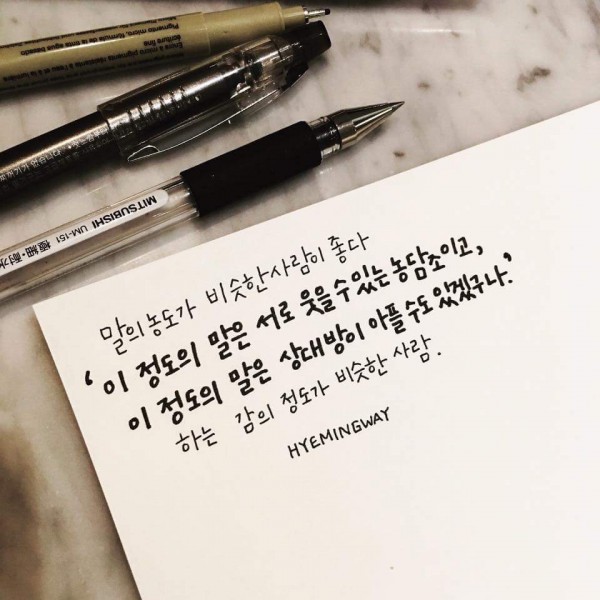 MITSUBISHI UM-151 極細・耐水
말의 농도가 비슷한 사람이 좋다
‘이 정도의 말은 서로 웃을 수 있는 농담조이고,
이 정도의 말은 상대방이 아플 수도 있겠구나.’
하는 감의 정도가 비슷한 사람.
HYEMINGWAY